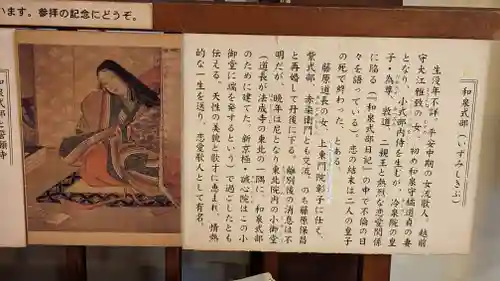 います。参拝の記念にどうぞ。
和泉式部(いずみしきぶ)
生没年不詳。平安中期の女流歌人。越前
守大江雅致の女。初め和泉守橘道貞の妻
となり、小式部内侍を生むが、冷泉院の皇
子・為尊、敦道、二親王と熱烈な恋愛関係
に陥る(「和泉式部日記」の中で不倫の日
々を語っている)。恋の結末は二人の皇子
の死で終わった、とある。
藤原道長の女、上東門院彰子に仕え、
紫式部、赤染衛門とも交流。のち藤原保昌
と再婚して丹後に下る。離別後の消息は不
明だが、晩年は尼となり東北院内の小御堂
(道長が法成寺の東北の一隅に、和泉式部
のために建てた。新京極・誠心院はこの小
御堂に端を発するという)で過ごしたとも
伝える。天性の美貌と歌才に恵まれ、情熱
的な一生を送り、恋愛歌人として有名。
和泉式部と